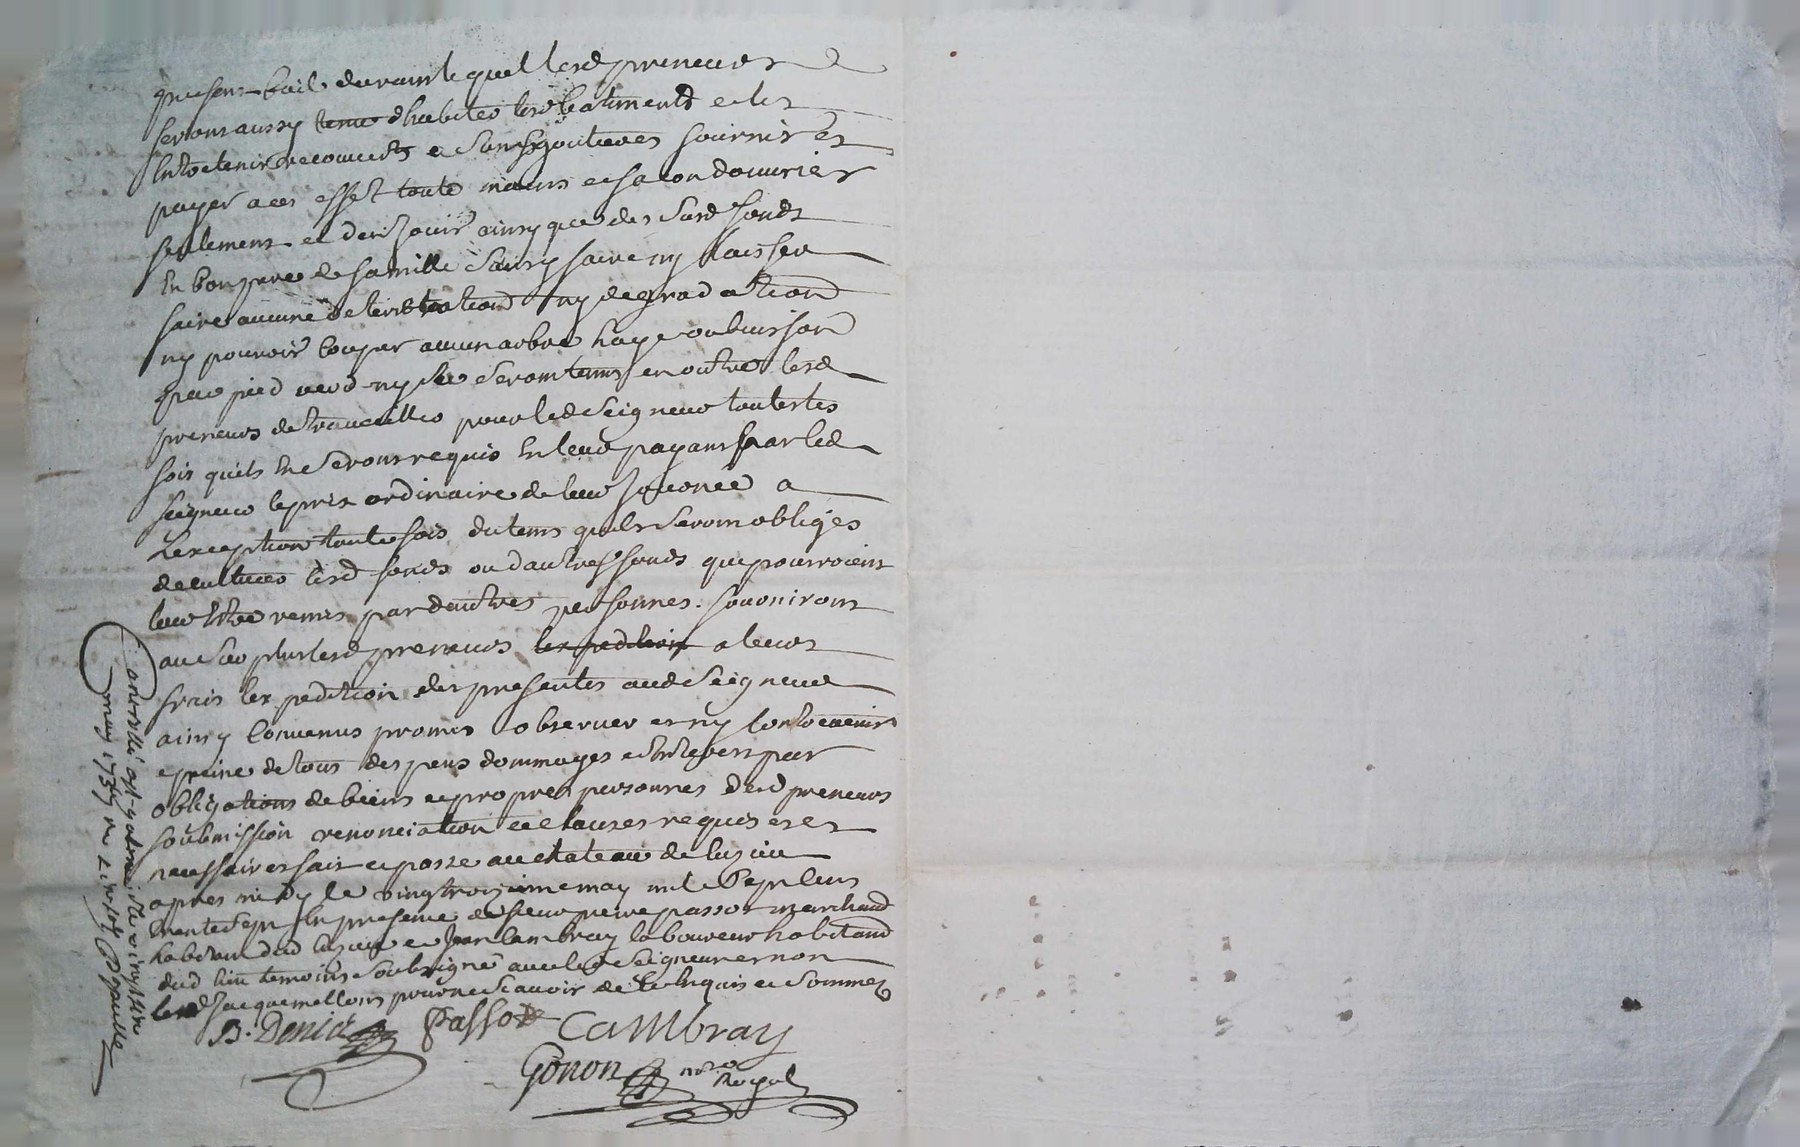 present bail durant lequel lesd preneurs
seront aussy tenu dhabiter lesd batiments et les
entretenir recouverts et sans goutieres fournir et
payer a cet effet toute mains et facon douvrier
seulement et den jouir ainsy que des susd fonds
en bon pere de famille sans y faire ny laisser
faire aucune deterioration ny degradation
ny pouvoir couper aucun arbre haye ou buisson
par pied verd ny sec seront tenus en outre lesd
preneurs de travailler pour led Seigneur toutes les
fois quils en seront requis en leur payant par led
seigneur le prix ordinaire de leur journée a
lexception toutefois du tems quils seront obliges
de cultiver lesd fonds ou dautres fonds qui pourroient
leur etre remis par dautres personnes. fourniront
au surplus lesd preneurs a leurs
frais lexpedition des presentes aud Seigneur
ainsy convenus promis observer et ny contrevenir
a peine de tous despens dommages et interest par
obligations de biens et propres personnes desd preneurs
soubmission renonciation et clauses requises et
necessaires fait et passé au chateau de
apres midy le vingt troizieme may mil sept cens
trente sept en presence de sieur pierre passot marchand
habitant dud et Jean Cambray laboureur habitand
dud lieu temoins soubsigné avec led Seigneur et non
lesd Jacquemettons pour ne scavoir de ce enquis et sommez
B. Denis Passot Cambray
Gonon nore
Royal
Controllé a le vingt sept
may 1737 Reçu